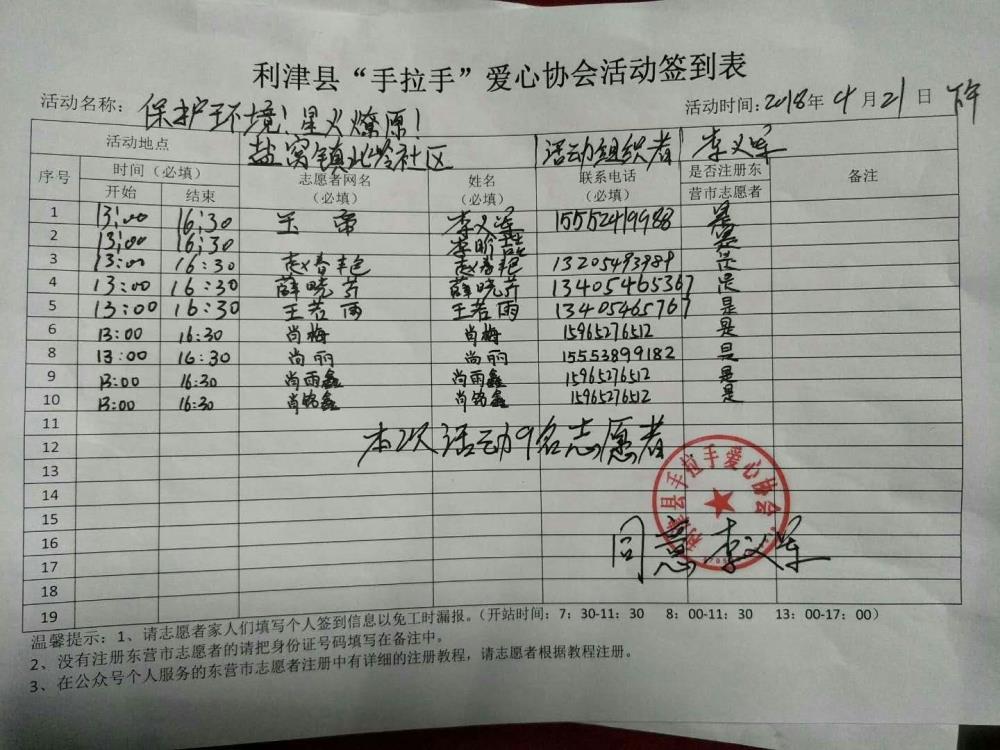 利津县“手拉手”爱心协会活动签到表
活动名称：保护环境！星火燎原！ 活动时间：2018年4月21日 下午
活动地点 盐窝镇北岭社区 活动组织者 李义军
序号 时间（必填） 志愿者网名（必填） 姓名（必填） 联系电话（必填） 是否注册东营市志愿者 备注
开始 结束
1 13:00 16:30 玉帝 李义军 15552419988 是
2 13:00 16:30 李昕喆 是
3 13:00 16:30 赵春艳 赵春艳 13205493989 是
4 13:00 16:30 薛晓芹 薛晓芹 13405465367 是
5 13:00 16:30 王若雨 王若雨 13405465767 是
6 13:00 16:30 尚梅 尚梅 15965276512 是
8 13:00 16:30 尚丽 尚丽 15553899182 是
9 13:00 16:30 尚雨鑫 尚雨鑫 15965276512 是
10 13:00 16:30 尚铭鑫 尚铭鑫 15965276512 是
11
12 本次活动9名志愿者
13
14
15
16
17
18
19
利津县手拉手爱心协会
同意 李义军
温馨提示：1、请志愿者家人们填写个人签到信息以免工时漏报。（开站时间：7：30-11：30 8：00-11：30 13：00-17：00）
2、没有注册东营市志愿者的请把身份证号码填写在备注中。
3、在公众号个人服务的东营市志愿者注册中有详细的注册教程，请志愿者根据教程注册。